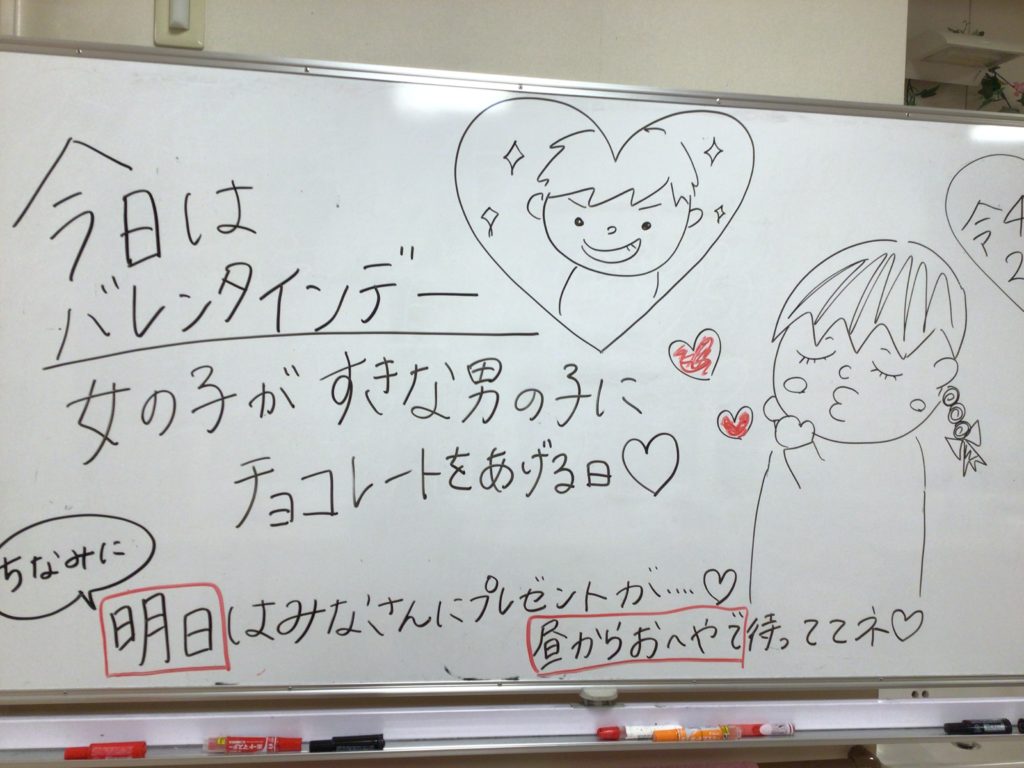 今日は
バレンタインデー
女の子がすきな男の子に
チョコレートをあげる日♡
ちなみに
明日はみなさんにプレゼントが....♡
昼からおへやで待っててネ♡
令4
2